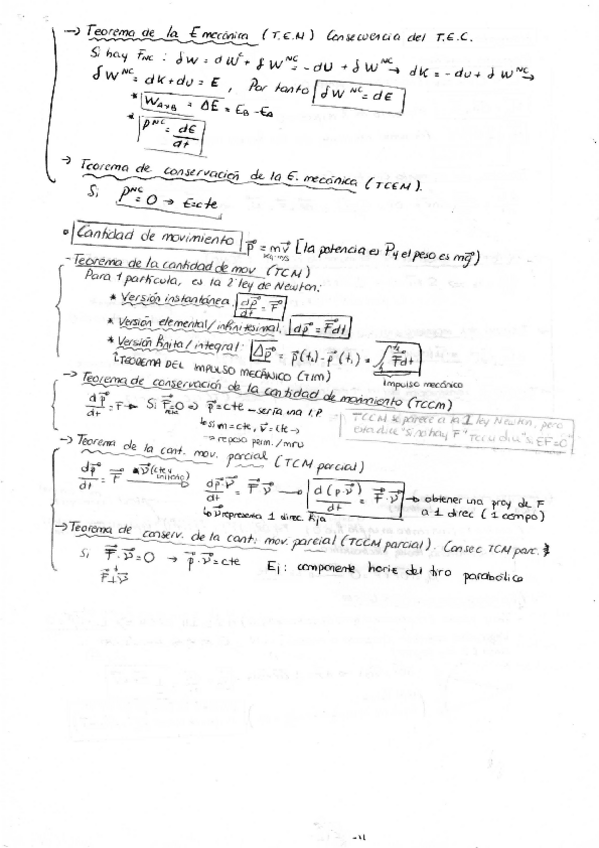 → Teorema de la E mecánica (T.E.M) Consecuencia del T.E.C.
Si hay F_NC : δW = δW^C + δW^NC = -dU + δW^NC → dK = -dU + δW^NC →
δW^NC = dK + dU = E, Por tanto δW^NC = dE
* W_A→B = ΔE = E_B - E_A
* P^NC = dE/dt
→ Teorema de conservación de la E. mecánica (TCEM).
Si P^NC = 0 → E = cte
• Cantidad de movimiento p⃗ = mv⃗ [la potencia es P y el peso es mg⃗)
kg·m/s
- Teorema de la cantidad de mov (TCM)
Para 1 partícula, es la 2ª ley de Newton:
* Versión instantánea: dp⃗/dt = F⃗
* Versión elemental/infinitesimal: dp⃗ = F⃗dt
* Versión finita/integral: Δp⃗ = p⃗(t₂) - p⃗(t₁) = ∫ F⃗dt
TEOREMA DEL IMPULSO MECÁNICO (TIM) Impulso mecánico
→ Teorema de conservación de la cantidad de movimiento (TCCM)
dp⃗/dt = F⃗ → Si F⃗=0 ⇒ p⃗=cte - sería una I.P
↳ si m=cte, v⃗=cte →
→ reposo perm./mru
TCCM se parece a la 1 ley Newton, pero
→ Teorema de la cant. mov. parcial (TCM parcial)
dp⃗/dt = F⃗ dp⃗·v⃗/dt = F⃗·v⃗ → d(p⃗·v⃗)/dt = F⃗·v⃗ → obtener una proy de F
↳ v⃗ representa 1 direc. fija a 1 direc (1 compo)
→ Teorema de conserv. de la cant. mov. parcial (TCCM parcial). Consec TCM parc.
Si F⃗·v⃗=0 → p⃗·v⃗=cte Ej: componente horiz del tiro parabólico
F⃗⊥v⃗